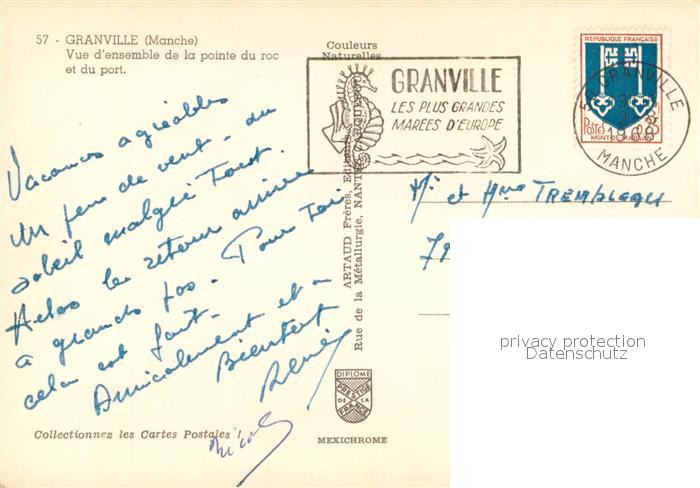 57 - GRANVILLE (Manche)
Vue d'ensemble de la pointe du roc
et du port.
Couleurs
Naturelles
GRANVILLE
LES PLUS GRANDES
MARÉES D'EUROPE
REPUBLIQUE FRANÇAISE
Postes
MONT-DE-MARSAN
50 GRANVILLE
MANCHE
Vacances agréables
un peu de vent - du
soleil malgré tout.
Hélas le retour arrive
a grands pas. Pour toi
cela est fait.
Amicalement et a
Bientôt
René
Nicole
Mr et Mme TREMBLEAU
79
ARTAUD Frères, Editeurs
Rue de la Métallurgie, NANTES
privacy protection
Datenschutz
DIPLOME
PRESTIGE
DE LA
FRANCE
Collectionnez les Cartes Postales !
MEXICHROME